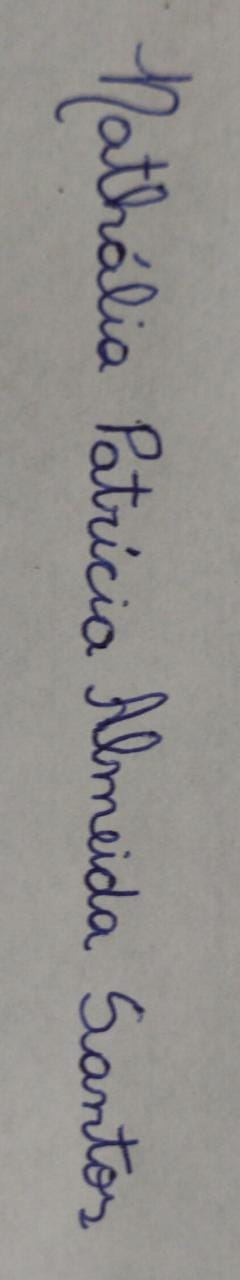 Nathália Patrícia Almeida Santos